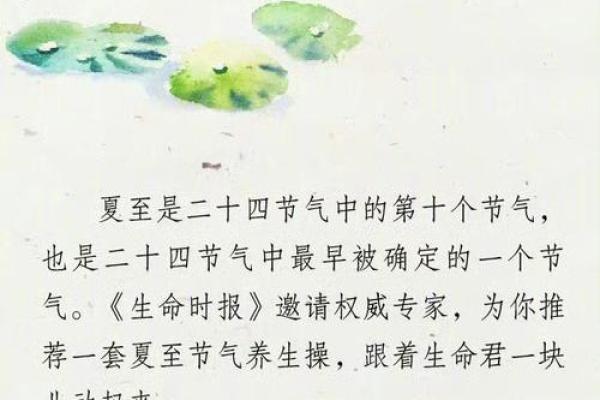 夏至是二十四节气中的第十个节气，
也是二十四节气中最早被确定的一个节
气。《生命时报》邀请权威专家，为你推
荐一套夏至节气养生操，跟着生命君一块